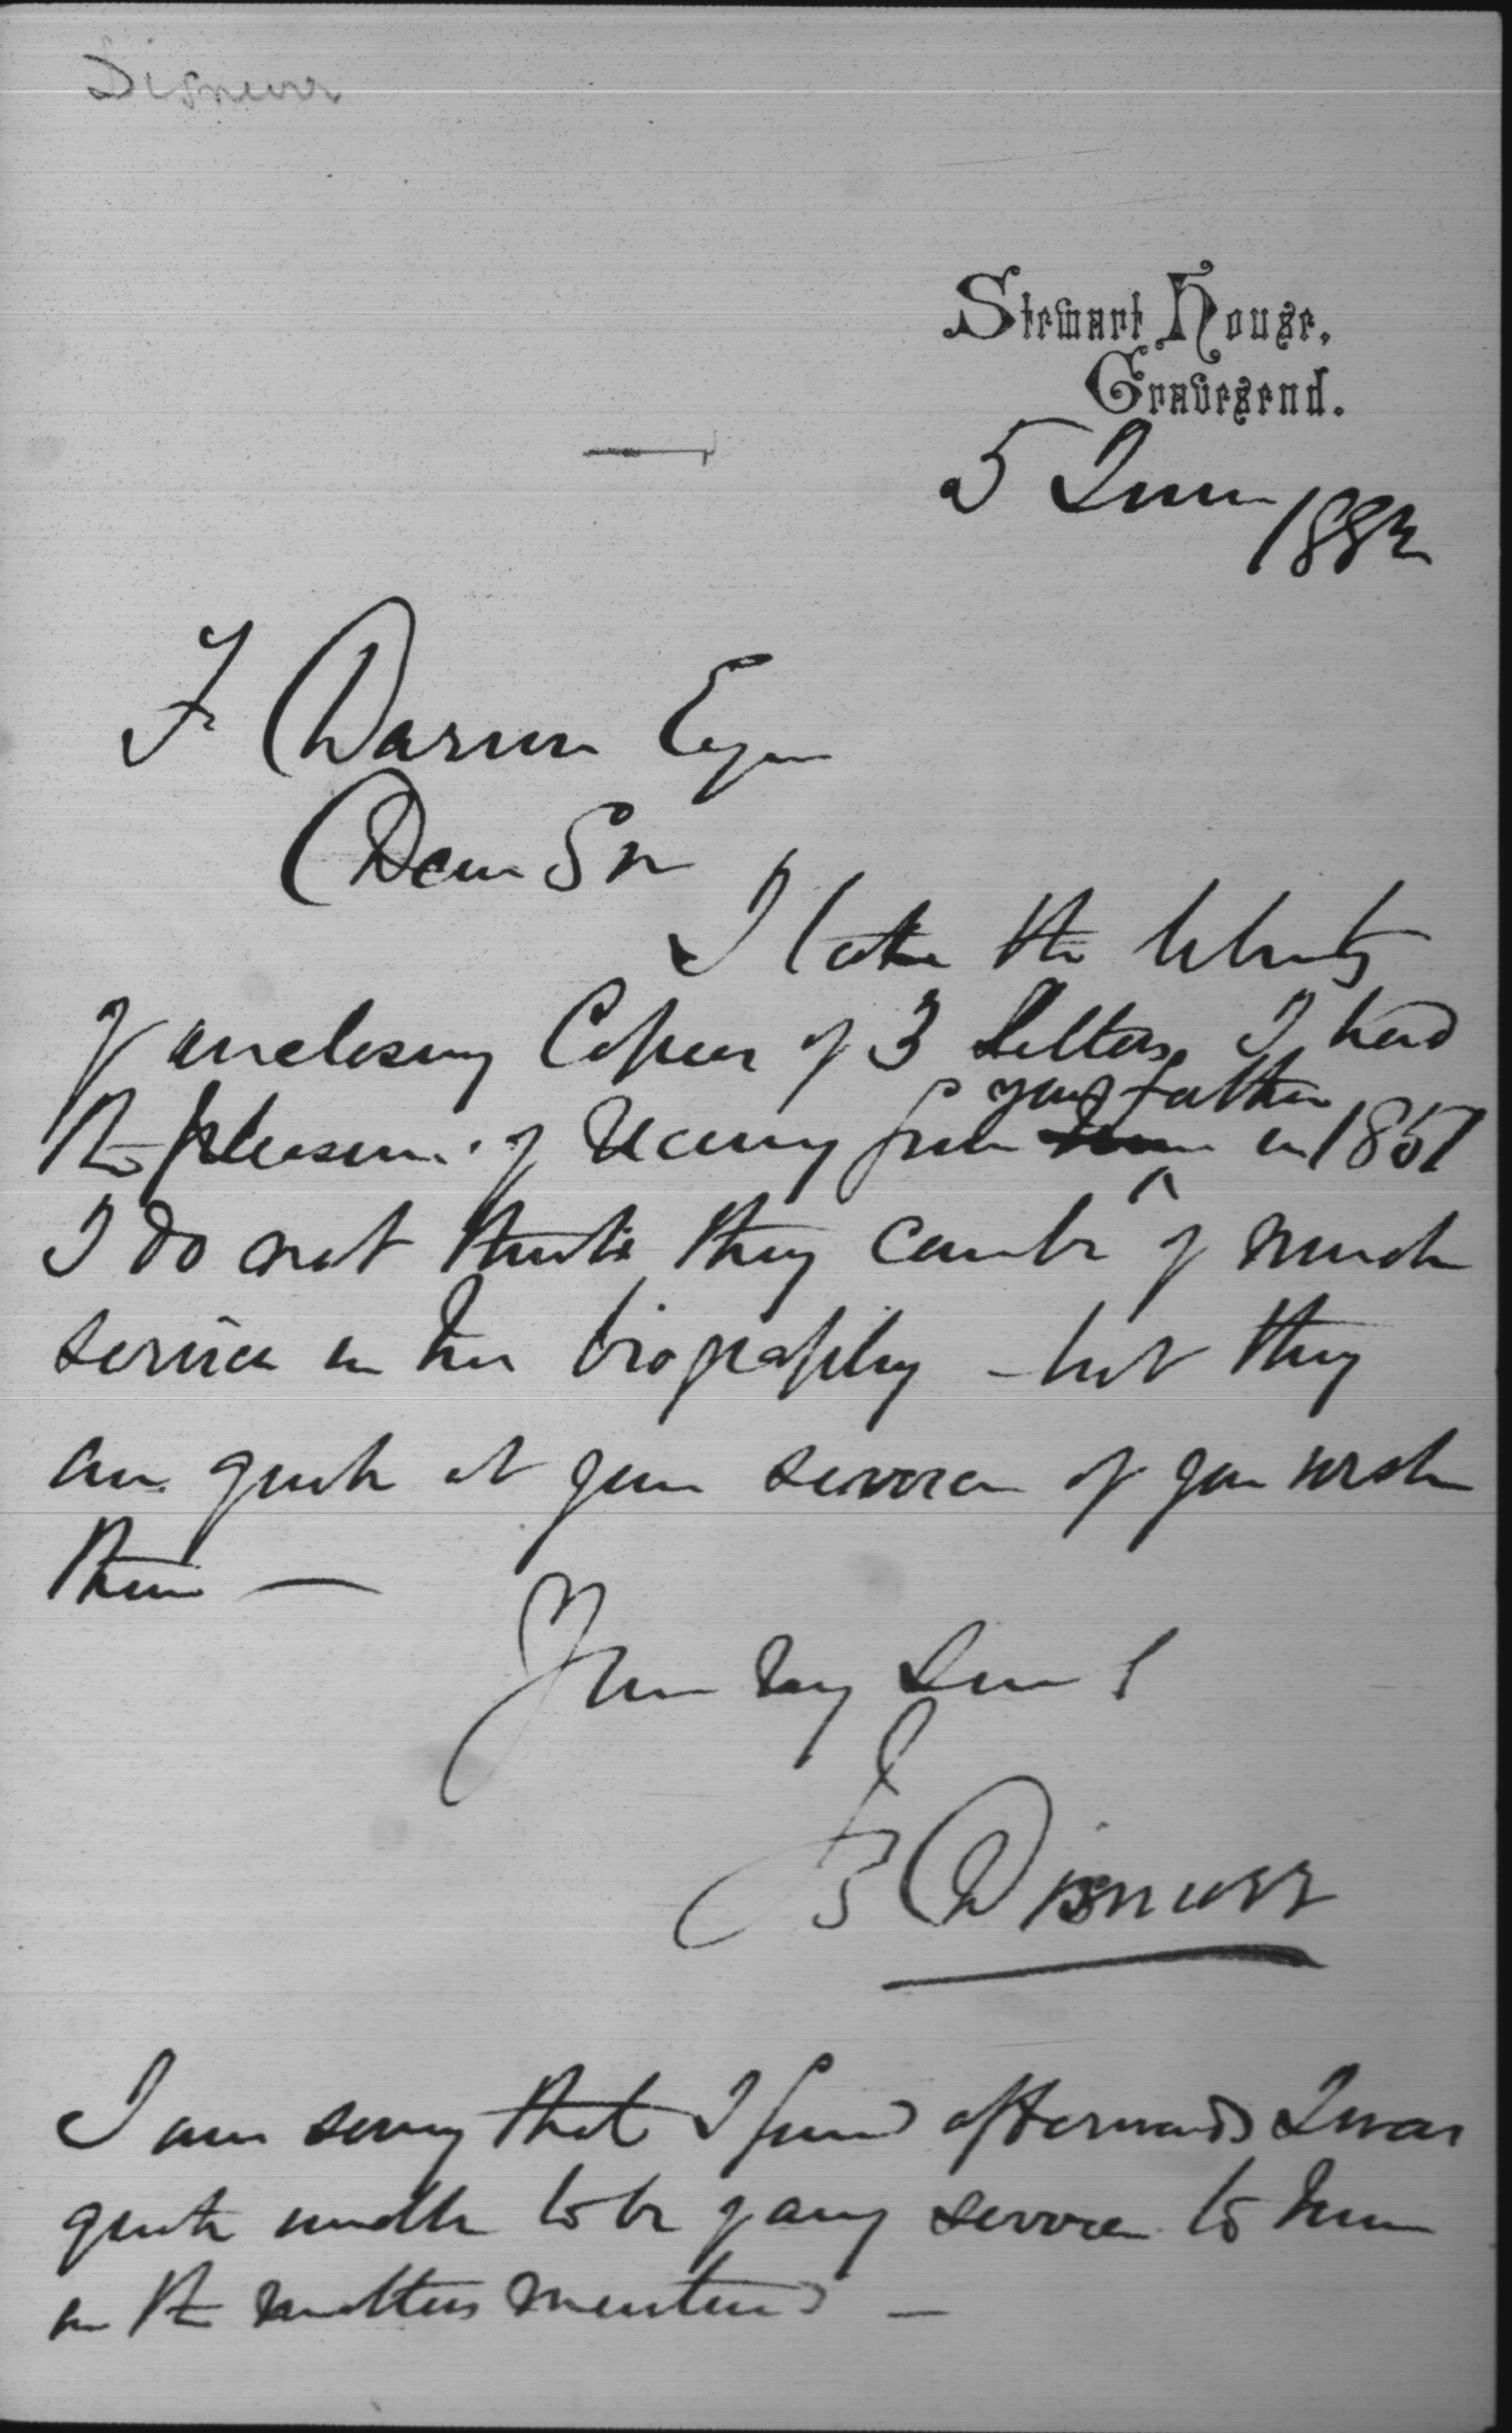 Dismurr
Stewart House,
Gravesend.
5 June
1882
F Darwin Esqre
Dear Sir
I take the liberty
of enclosing Copies of 3 Letters I had
your father
the pleasure of receiving from him in 1857
I do not think they can be of much
service in his biography - but they
are quite at your service if you wish
them —
Yours very
Dismurr
I am sorry that I found afterwards I was
quite unable to be of any service to him
in the matters mentioned —